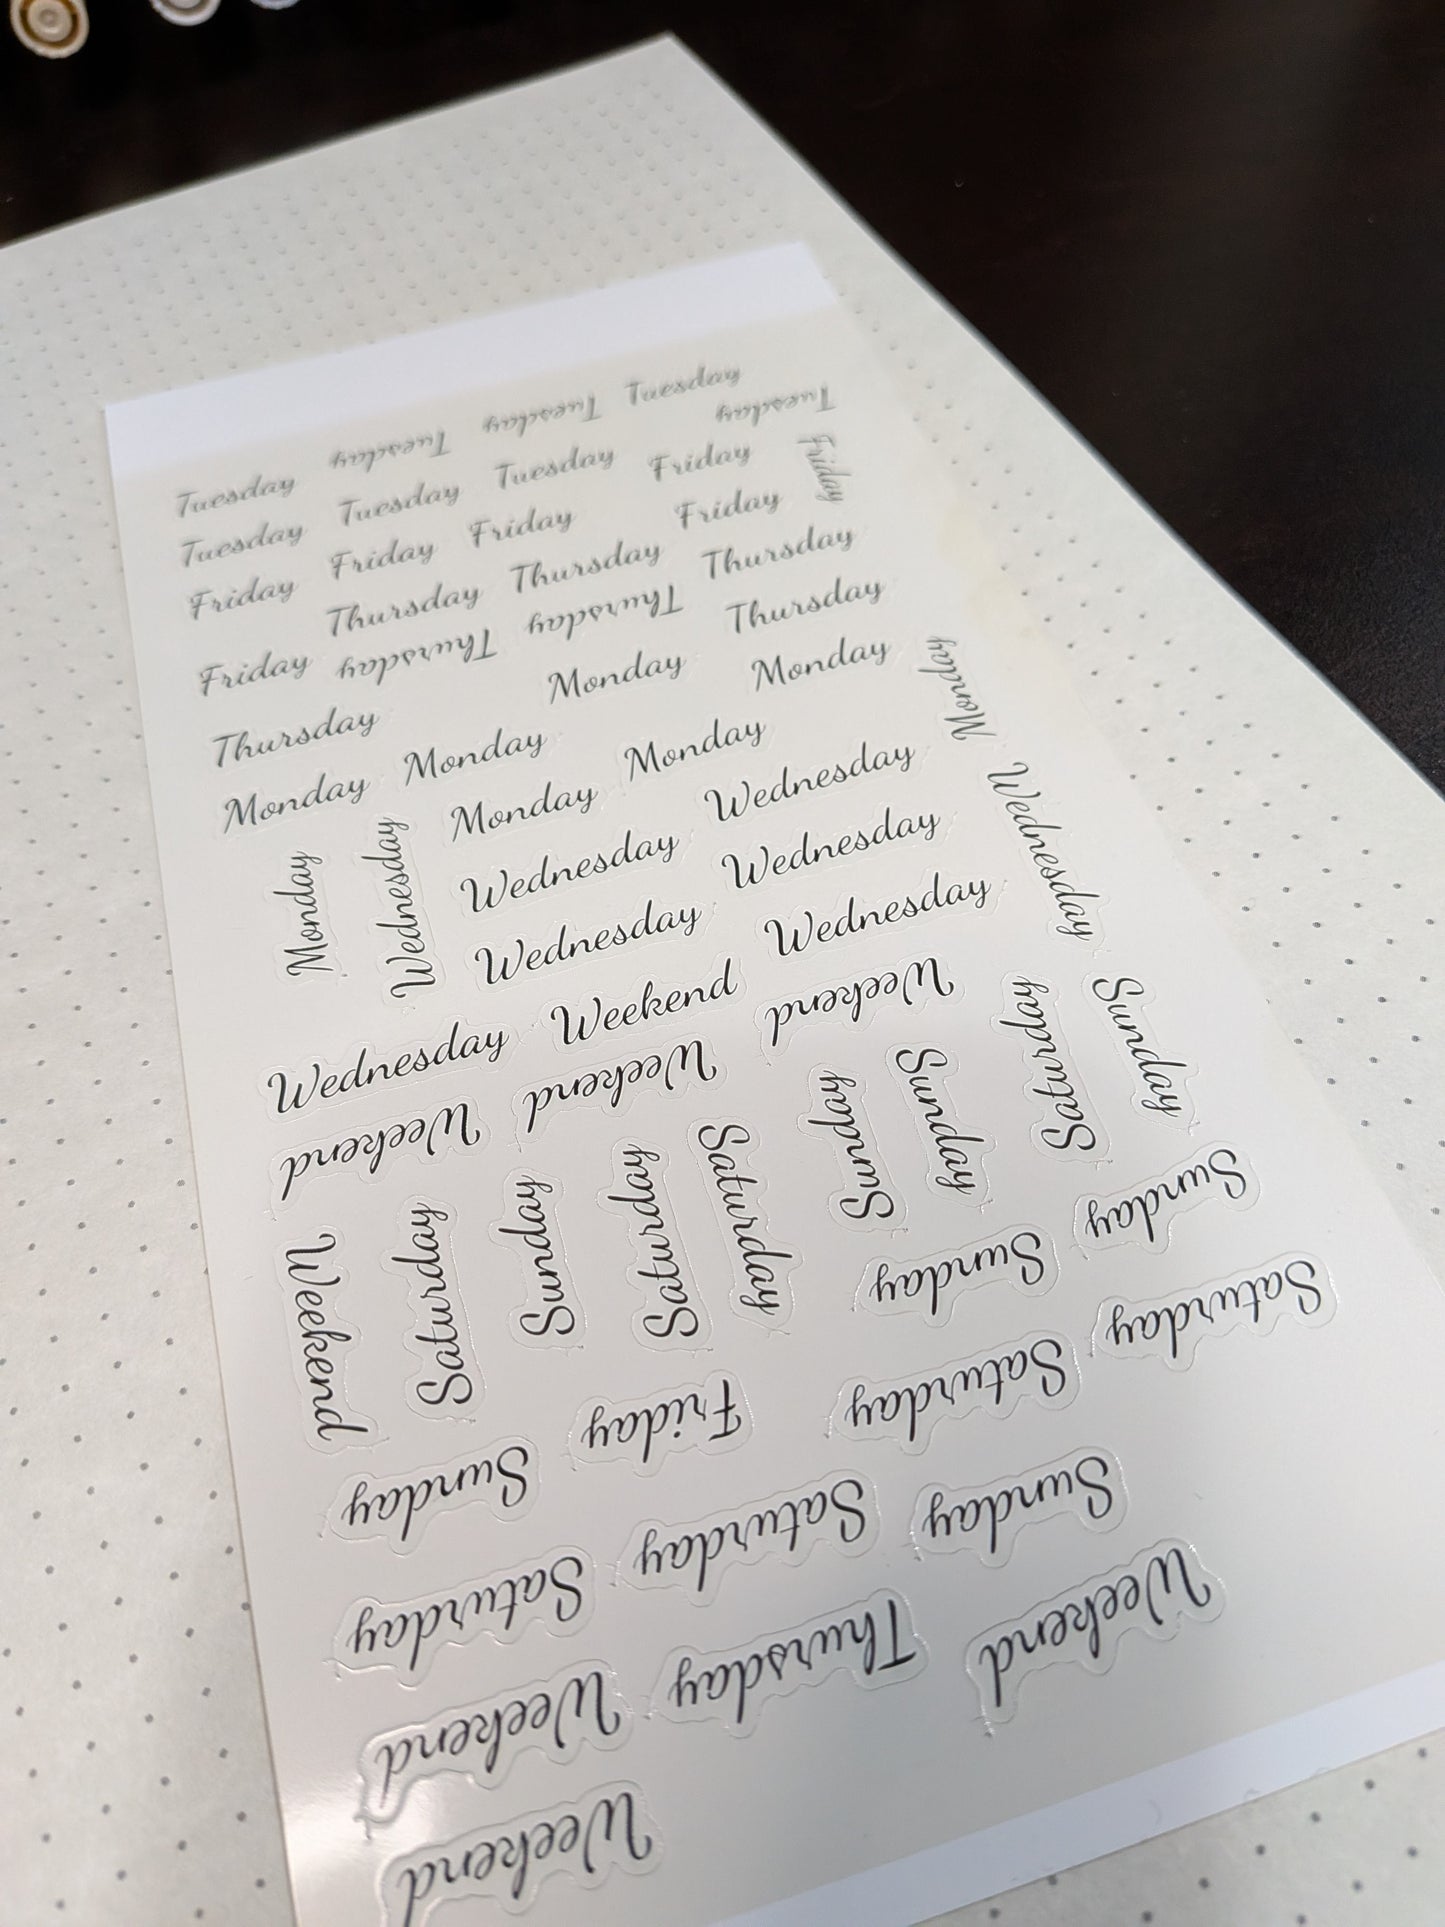 Tuesday Tuesday Tuesday Tuesday Tuesday
Tuesday Tuesday Tuesday Friday Friday
Friday Friday Friday Friday
Friday Thursday Thursday Thursday
Thursday Thursday Thursday Thursday
Monday Monday Monday
Monday Monday Monday Monday
Monday Wednesday Wednesday Wednesday Wednesday
Wednesday Wednesday Wednesday
Wednesday Weekend Weekend
Weekend Weekend Saturday Sunday
Weekend Saturday Sunday Saturday Saturday Sunday Sunday
Sunday Sunday
Friday Saturday Saturday
Sunday Saturday Sunday
Saturday Thursday Weekend
Weekend
Weekend